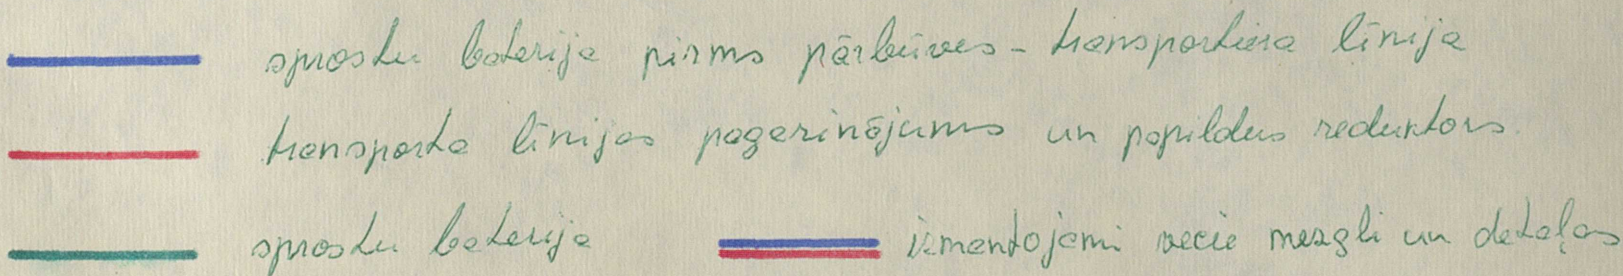 sprostu baterija pirms pārbūves - transportiera līnija
transporta līnijas pagarinājums un papildus reduktors.
sprostu baterija izmantojami vecie mezgli un detaļas